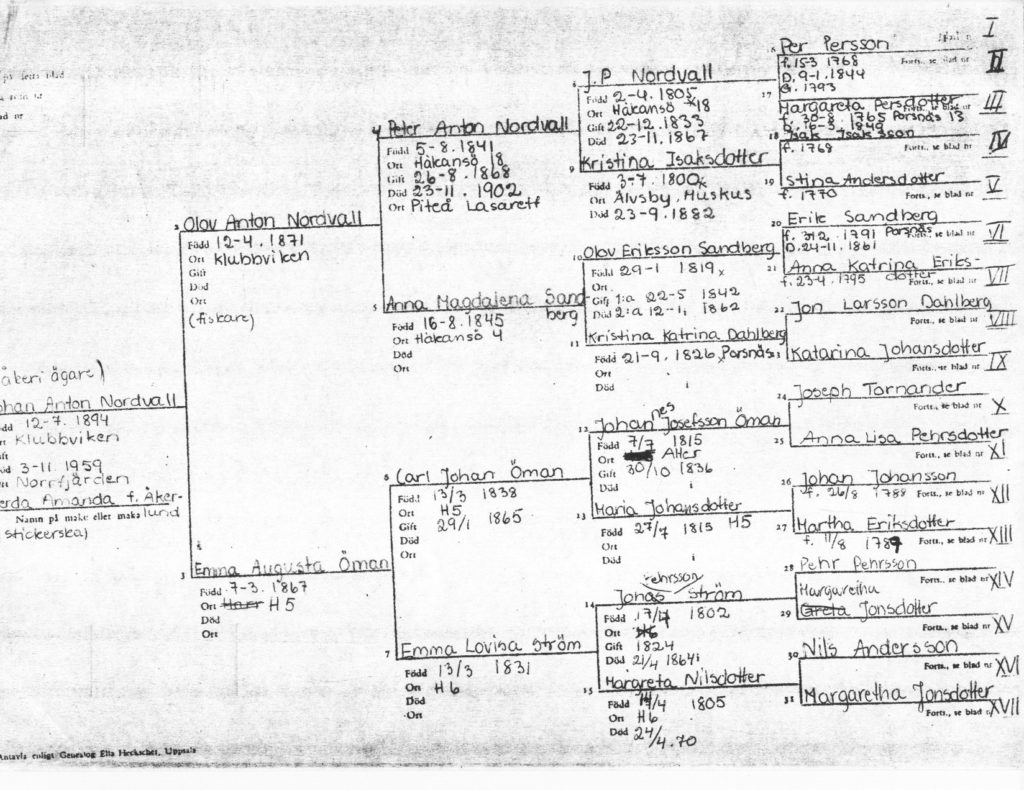 på detta blad
ad nr
åkeri ägare)
ohan Anton Nordvall
dd 12-7. 1894
rt Klubbviken
ift
öd 3-11. 1959
rt Norrfjärden
erda Amanda f. Åker-
lund
Namn på make eller maka
stickerska)
2 Olov Anton Nordvall
Född 12-4. 1871
Ort Klubbviken
Gift
Död
Ort
(fiskare)
3 Emma Augusta Öman
Född 7-3. 1867
Ort H 5
Död
Ort
4 Peter Anton Nordvall
Född 5-8. 1841
Ort Håkansö 18
Gift 26-8. 1868
Död 23-11. 1902
Ort Piteå Lasarett
5 Anna Magdalena Sand
berg
Född 16-8. 1845
Ort Håkansö 4
Död
Ort
6 Carl Johan Öman
Född 13/3 1838
Ort H5
Gift 29/1 1865
Död
Ort
7 Emma Lovisa Ström
Född 13/3 1831
Ort H 6
Död
Ort
8 J.P Nordvall
Född 2-4. 1805
Ort Håkansö x18
Gift 22-12. 1833
Död 23-11. 1867
9 Kristina Isaksdotter
Född 3-7. 1800x
Ort Älvsby, Muskus
Död 23-9. 1882
10 Olov Eriksson Sandberg
Född 29-1 1819x
Ort
Gift 1:a 22-5 1842
Död 2:a 12-1, 1862
11 Kristina Katrina Dahlberg
Född 21-9. 1826, Porsnäs
Ort
Död
12 Johannes Josefsson Öman
Född 7/7 1815
Ort Alter
Gift 30/10 1836
Död
13 Maria Johansdotter
Född 27/7 1815 H5
Ort
Död
14 Jonas Pehrsson Ström
Född 17/7 1802
Ort H6
Gift 1824
Död 21/4 1864
15 Margreta Nilsdotter
Född 14/4 1805
Ort H6
Död 24/4.70
Per Persson
I
f. 15-3 1768
Forts., se blad nr II
D. 9-1. 1844
G. 1793
17 Margareta Persdotter
III
f. 30-8. 1765 Porsnäs 13
D. 16-3. 1849
18 Isak Isaksson
f. 1768
Forts., se blad nr IV
19 Stina Andersdotter
f. 1770
Forts., se blad nr V
20 Erik Sandberg
f. 31.2. 1791 Porsnäs
Forts., se blad nr VI
D. 24-11. 1861
21 Anna Katrina Eriks-
dotter
f. 23-4. 1795
Forts., se blad nr VII
22 Jon Larsson Dahlberg
Forts., se blad nr VIII
23 Katarina Johansdotter
Forts., se blad nr IX
24 Joseph Tornander
Forts., se blad nr X
25 Anna Lisa Pehrsdotter
Forts., se blad nr XI
26 Johan Johansson
f. 26/8 1788
Forts., se blad nr XII
27 Martha Eriksdotter
f. 11/8 1789
Forts., se blad nr XIII
28 Pehr Pehrsson
Forts., se blad nr XIV
Margaretha
29 Greta Jonsdotter
Forts., se blad nr XV
30 Nils Andersson
Forts., se blad nr XVI
31 Margaretha Jonsdotter
Forts., se blad nr XVII
Antavla enligt Genealog Ella Heckscher, Uppsala